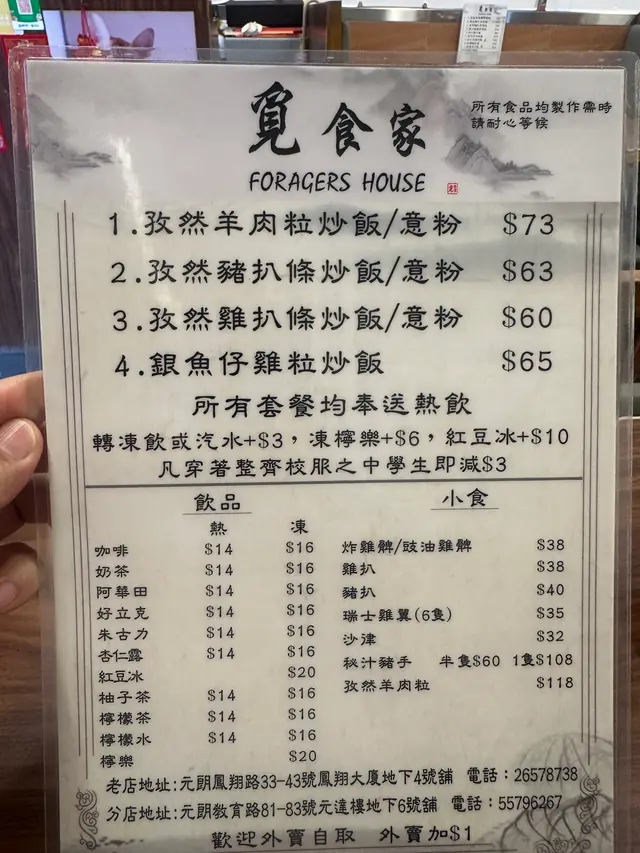 覓食家
所有食品均製作需時
請耐心等候
FORAGERS HOUSE
1.孜然羊肉粒炒飯/意粉 $73
2.孜然豬扒條炒飯/意粉 $63
3.孜然雞扒條炒飯/意粉 $60
4.銀魚仔雞粒炒飯 $65
所有套餐均奉送熱飲
轉凍飲或汽水+$3，凍檸樂+$6，紅豆冰+$10
凡穿著整齊校服之中學生即減$3
飲品
熱 凍
咖啡 $14 $16
奶茶 $14 $16
阿華田 $14 $16
好立克 $14 $16
朱古力 $14 $16
杏仁露 $14 $16
紅豆冰 $20
柚子茶 $14 $16
檸檬茶 $14 $16
檸檬水 $14 $16
檸樂 $20
小食
炸雞髀/豉油雞髀 $38
雞扒 $38
豬扒 $40
瑞士雞翼(6隻) $35
沙律 $32
秘汁豬手 半隻$60 1隻$108
孜然羊肉粒 $118
老店地址:元朗鳳翔路33-43號鳳翔大廈地下4號舖 電話：26578738
分店地址:元朗教育路81-83號元達樓地下6號舖 電話：55796267
歡迎外賣自取 外賣加$1